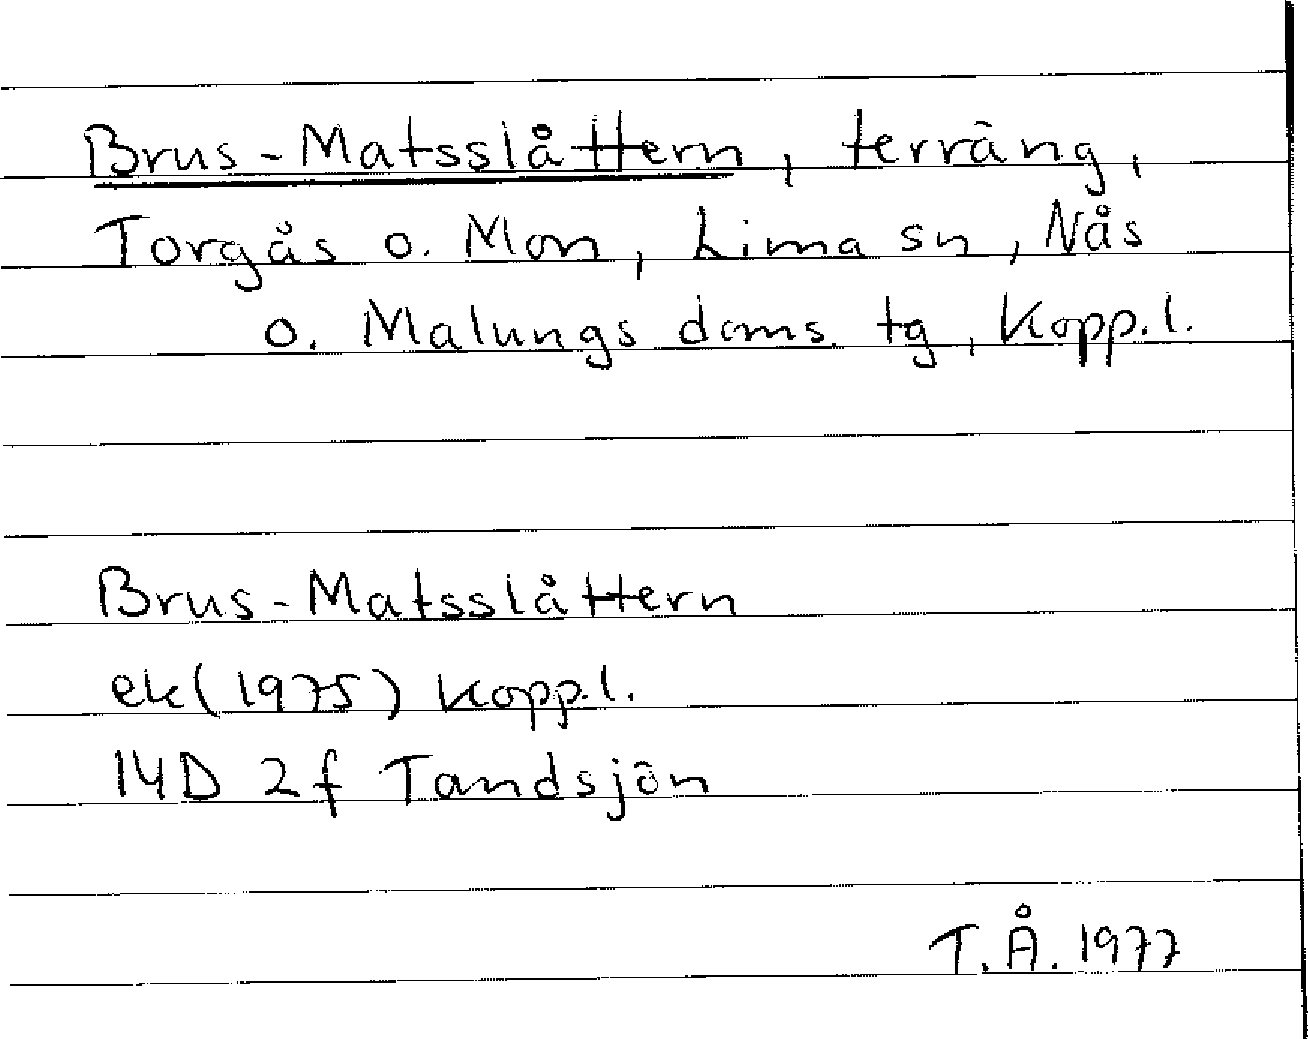 Brus-Matsslåttern, terräng,
Torgås o. Mon, Lima sn, Nås
o. Malungs doms. tg, Kopp.l.
Brus-Matsslåttern
ek(1975) Kopp.l.
14D 2f Tandsjön
T.Å. 1977